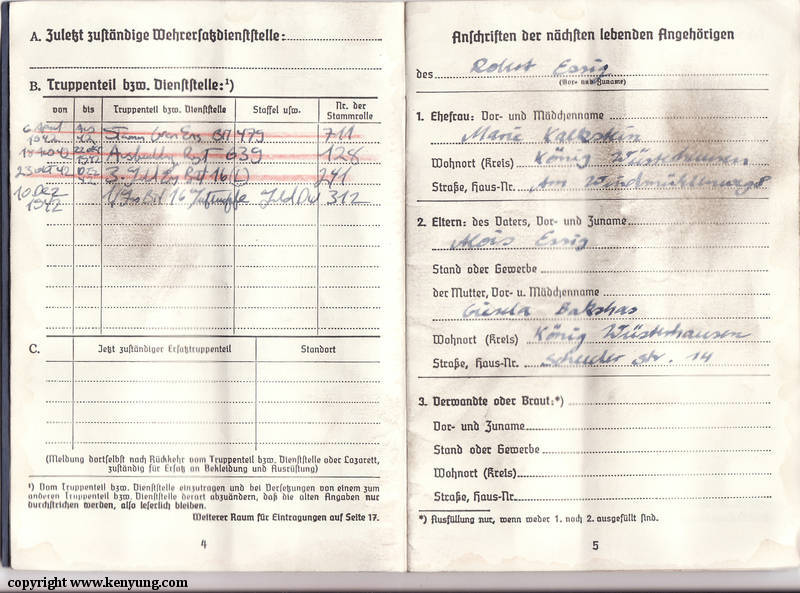 A. Zuletzt zuständige Wehrersatzdienststelle:
B. Truppenteil bzw. Dienststelle:¹)
von bis Truppenteil bzw. Dienststelle Staffel usw. Nr. der Stammrolle
6 April 1942 Stamm Gren Ers Btl 479 711
Ausbildg Rgt 639 128
23 Okt 42 3. Feld Rgt 16 (L) 241
10 Dez 1942 Btl 16 Luftwaffe Feld Div 312
C. Jetzt zuständiger Ersatztruppenteil Standort
(Meldung dortselbst nach Rückkehr vom Truppenteil bzw. Dienststelle oder Lazarett,
zuständig für Ersatz an Bekleidung und Ausrüstung)
¹) Vom Truppenteil bzw. Dienststelle einzutragen und bei Versetzungen von einem zum
anderen Truppenteil bzw. Dienststelle derart abzuändern, daß die alten Angaben nur
durchstrichen werden, also leserlich bleiben.
Weiterer Raum für Eintragungen auf Seite 17.
4
Anschriften der nächsten lebenden Angehörigen
des Robert Essig
(Vor- und Zuname)
1. Ehefrau: Vor- und Mädchenname
Marie Kalkstein
Wohnort (Kreis) König Wüsterhausen
Straße, Haus-Nr. Am Windmühlenweg 8
2. Eltern: des Vaters, Vor- und Zuname
Alois Essig
Stand oder Gewerbe
der Mutter, Vor- u. Mädchenname
Gisela Bakshas
Wohnort (Kreis) König Wüsterhausen
Straße, Haus-Nr. str. 14
3. Verwandte oder Braut:*)
Vor- und Zuname
Stand oder Gewerbe
Wohnort (Kreis)
Straße, Haus-Nr.
*) Ausfüllung nur, wenn weder 1. noch 2. ausgefüllt sind.
5
copyright www.kenyung.com